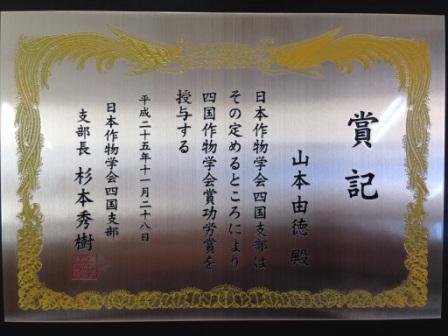 賞記
山本由徳 殿
日本作物学会四国支部は
その定めるところにより
四国作物学会賞功労賞を
授与する
平成二十五年十一月二十八日
日本作物学会四国支部
支部長 杉本秀樹